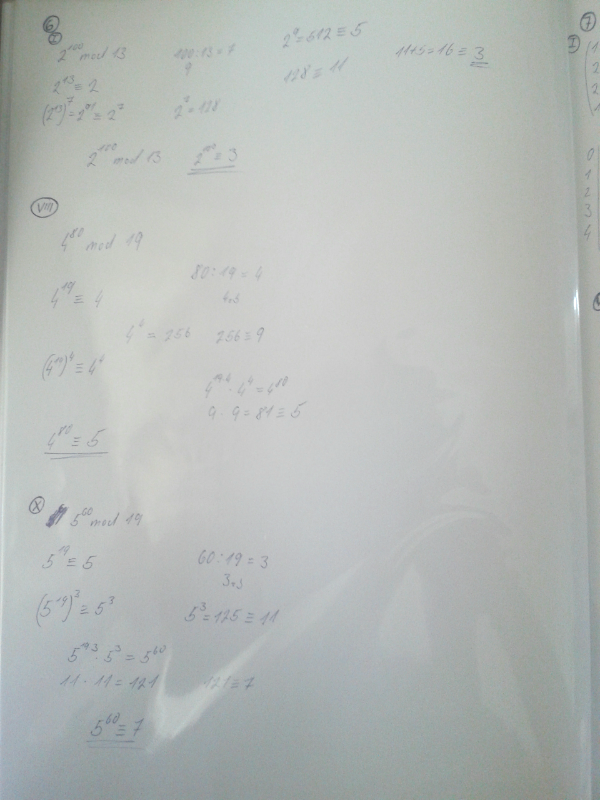 6
I
2^100 mod 13
100:13=7
9
2^9=612≡5
128≡11
11+5=16≡3
2^13≡2
(2^13)^7=2^91≡2^7
2^7=128
2^100 mod 13
2^100≡3
VIII
4^80 mod 19
80:19=4
4^19≡4
4^4=256
256≡9
(4^19)^4≡4^4
4^19·4·4^4=4^80
9·9=81≡5
4^80≡5
X
5^60 mod 19
5^19≡5
60:19=3
(5^19)^3≡5^3
5^3=125≡11
5^19·3·5^3=5^60
11·11=121
121≡7
5^60≡7
7
I
0
1
2
3
4